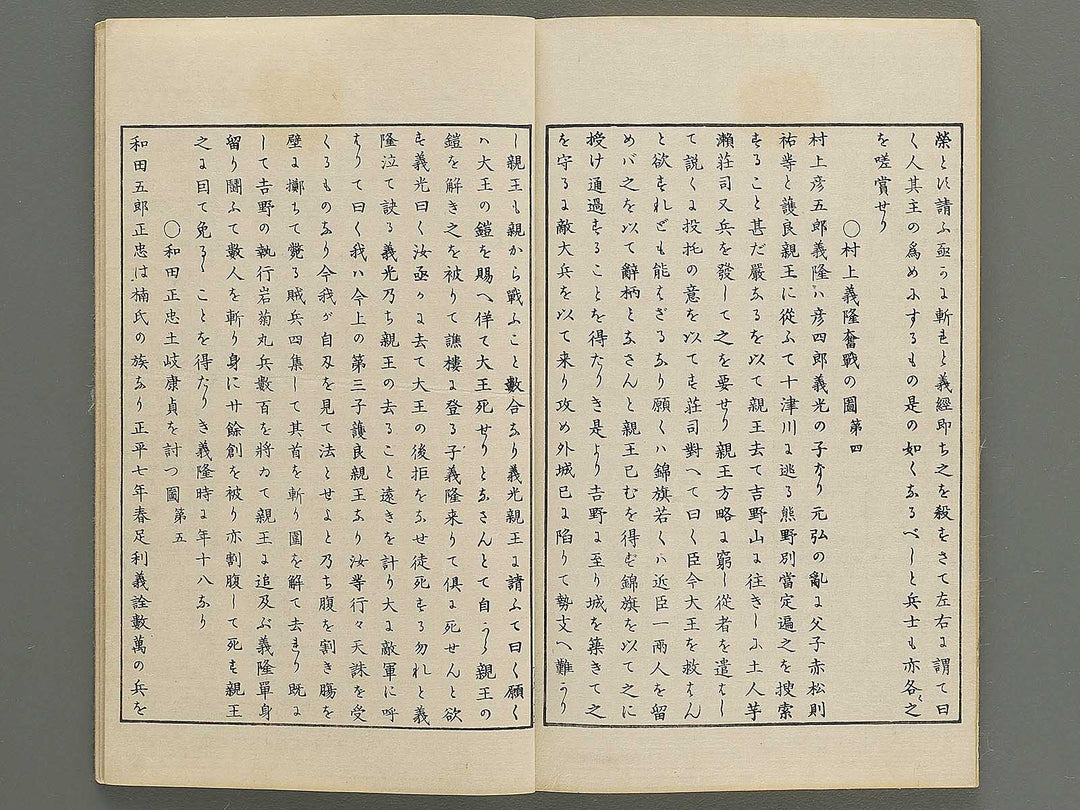 榮とは請ふ亟かに斬れと義經即ち之を殺さて左右に謂て曰
く人其主の爲めにするもの是の如くなるべしと兵士も亦各〻之
を嗟賞せり
〇村上義隆奮戰の圖第四
村上彦五郎義隆ハ彦四郎義光の子なり元弘の亂に父子赤松則
祐等と護良親王に從ふて十津川に逃る熊野別當定遍之を搜索
すること甚だ嚴なるを以て親王去て吉野山に往きしに土人芋
瀨莊司又兵を發して之を要せり親王方略に窮し從者を遣はし
て說くに投托の意を以てす莊司對へて曰く臣今大王を救はん
と欲すれども能はざるなり願くハ錦旗若くハ近臣一兩人を留
めバ之を以て辭柄となさんと親王已むを得ず錦旗を以て之に
授け通過することを得たりき是より吉野に至り城を築きて之
を守るに敵大兵を以て来り攻め外城已に陷りて勢支へ難かり
し親王も親から戰ふこと數合なり義光親王に請ふて曰く願く
ハ大王の鎧を賜へ佯て大王死せりとなさんとて自から親王の
鎧を解き之を被りて譙樓に登る子義隆来りて俱に死せんと欲
す義光曰く汝亟かに去て大王の後拒をなせ徒死する勿れと義
隆泣て訣る義光乃ち親王の去ること遠きを計り大に敵軍に呼
はりて曰く我ハ今上の第三子護良親王なり汝等行々天誅を受
くるものなり今我が自刄を見て法とせよと乃ち腹を割き腸を
壁に擲ちて斃る賊兵四集して其首を斬り圍を解て去まり既に
して吉野の執行岩菊丸兵數百を將ゐて親王に追及ぶ義隆單身
留り鬪ふて數人を斬り身に廿餘創を被り亦割腹して死す親王
之に因て免るゝことを得たりき義隆時に年十八なり
〇和田正忠土岐康貞を討つ圖第五
和田五郎正忠は楠氏の族なり正平七年春足利義詮數萬の兵を